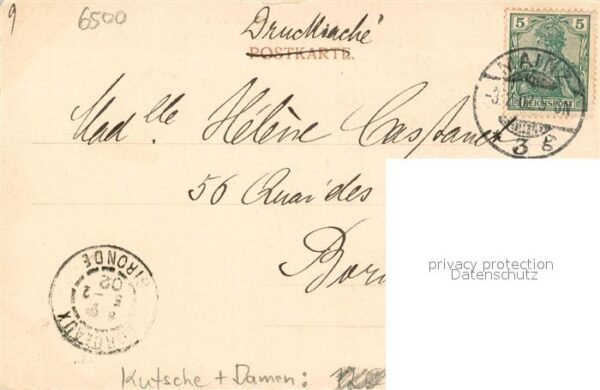 9
6500
Drucksache
POSTKARTE.
5 5
REICHSPOST
MAINZ
3
Mad lle Hélène Castanet
56 Quai des
Bor
privacy protection
Datenschutz
BORDEAUX
GIRONDE
8
5 - 2
02
Kutsche + Damen: